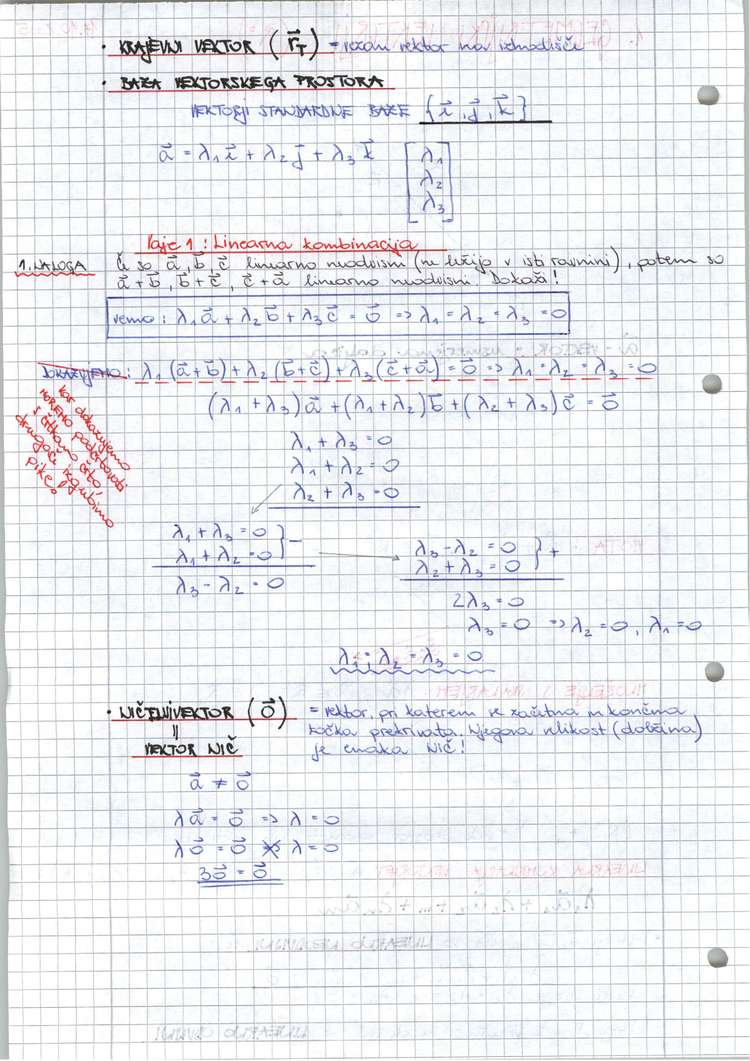 • KRAJEVNI VEKTOR (r⃗_T) = vezan vektor na izhodišče
• BAZA VEKTORSKEGA PROSTORA
VEKTORJI STANDARDNE BAZE {i⃗, j⃗, k⃗}
a⃗ = λ₁i⃗ + λ₂j⃗ + λ₃k⃗ [λ₁ λ₂ λ₃]
Vaje 1: Linearna kombinacija
1. NALOGA Če so a⃗, b⃗, c⃗ linearno neodvisni (ne ležijo v isti ravnini), potem so
a⃗+b⃗, b⃗+c⃗, c⃗+a⃗ linearno neodvisni. Dokaži!
vemo: λ₁a⃗ + λ₂b⃗ + λ₃c⃗ = 0⃗ => λ₁ = λ₂ = λ₃ = 0
DOKAZUJEMO: λ₁(a⃗+b⃗) + λ₂(b⃗+c⃗) + λ₃(c⃗+a⃗) = 0⃗ => λ₁ = λ₂ = λ₃ = 0
kar dokazujemo
MOREMO podčrtovati
s črtkano črto,
drugače izgubimo
pike!
(λ₁+λ₃)a⃗ + (λ₁+λ₂)b⃗ + (λ₂+λ₃)c⃗ = 0⃗
λ₁ + λ₃ = 0
λ₁ + λ₂ = 0
λ₂ + λ₃ = 0
λ₁ + λ₃ = 0 } −
λ₁ + λ₂ = 0
λ₃ − λ₂ = 0
λ₃ − λ₂ = 0 } +
λ₂ + λ₃ = 0
2λ₃ = 0
λ₃ = 0 => λ₂ = 0, λ₁ = 0
λ₁ = λ₂ = λ₃ = 0
• NIČELNI VEKTOR (0⃗) = vektor, pri katerem se začetna in končna
|| točka prekrivata. Njegova velikost (dolžina)
VEKTOR NIČ je enaka NIČ!
a⃗ ≠ 0⃗
λa⃗ = 0⃗ => λ = 0
λ0⃗ = 0⃗ ⇏ λ = 0
30⃗ = 0⃗